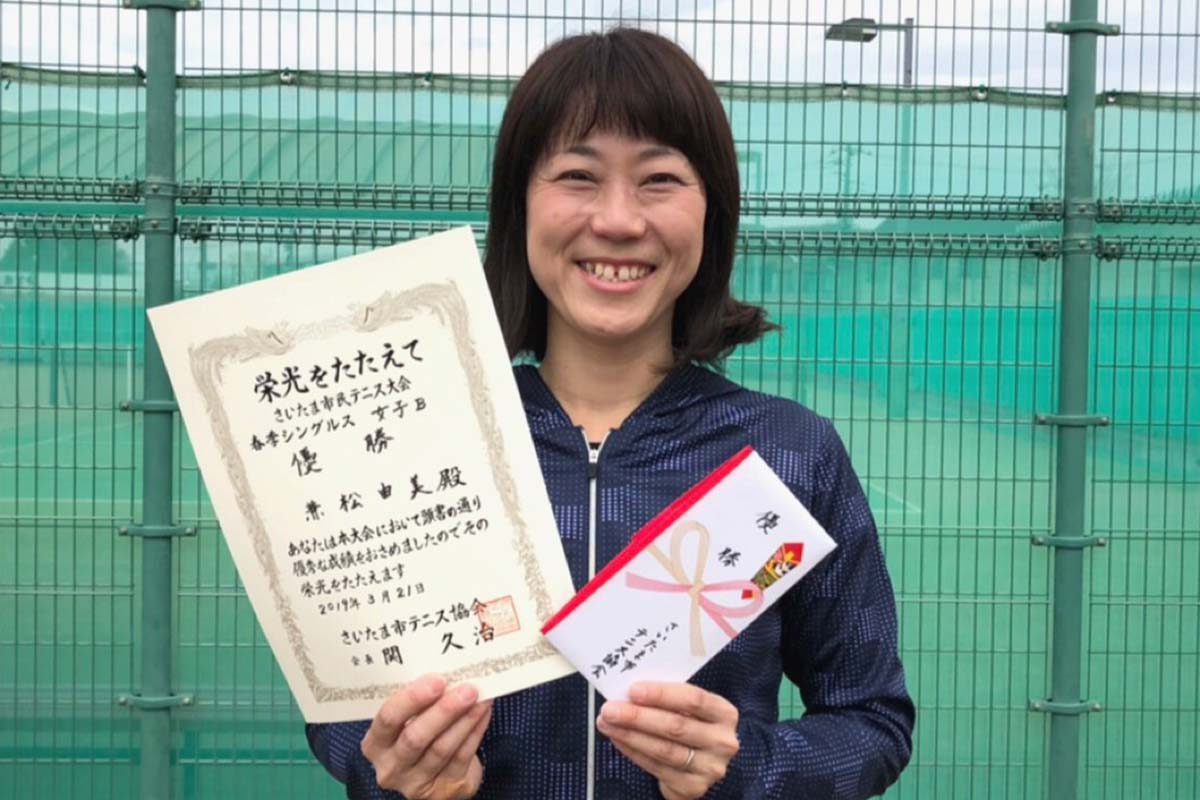 栄光をたたえて
さいたま市民テニス大会
春季シングルス 女子B
優勝
兼松由美殿
あなたは本大会において頭書の通り
優秀な成績をおさめましたのでその
栄光をたたえます
2019年3月21日
さいたま市テニス協会
会長 関 久治
優勝
さいたま市
テニス協会